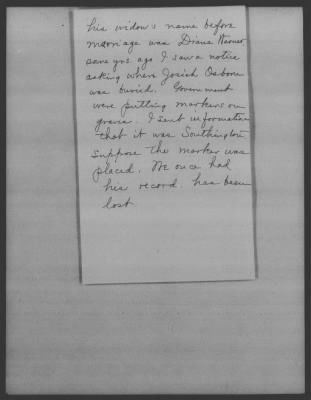 his widow's name before
marriage was Diana Warner
some yrs ago I saw a notice
asking where Josiah Osborn
was buried. Government
were putting markers on
graves. I sent information
that it was Southington
suppose the marker was
placed. We once had
his record. has been
lost